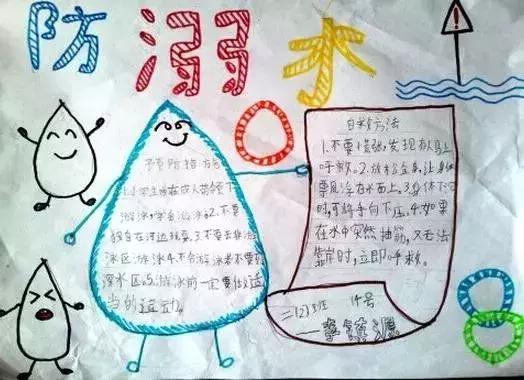 防溺水
预防措施
1.小学生应在成人带领下
游泳,学会游泳。2.不要
独自在河边玩耍。3.不要去非游
泳区游泳。4.不会游泳者不要到
深水区。5.游泳前一定要做适
当的运动。
自救方法
1.不要慌张,发现有人马上
呼救。2.放松全身,让身体
飘浮在水面上。3.身体下沉
时,可将手向下压。4.如果
在水中突然抽筋,又无法
靠岸时,立即呼救。
二(2)班 14号
李